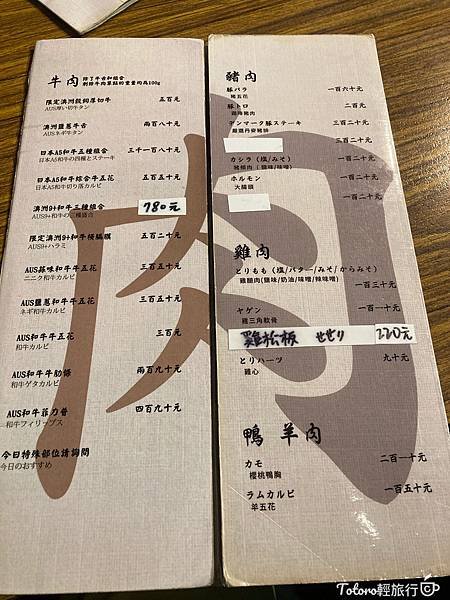 牛肉
除了牛舌和組合
剩餘牛肉單點的重量均為100g
限定澳洲穀飼厚切牛 五百元
AUS厚い切牛タン
澳洲鹽蔥牛舌 兩百八十元
AUSネギ牛タン
日本A5和牛五種組合 三千一百八十元
日本A5和牛の四種とステーキ
日本A5和牛綜合牛五花 五百五十元
日本A5和牛切り落カルビ
澳洲9+和牛三種組合 780元
AUS9+和牛の三種盛合
限定澳洲9+和牛橫膈膜 五百二十元
AUS9+ハラミ
AUS蒜味和牛牛五花 三百五十元
ニニク和牛カルビ
AUS鹽蔥和牛牛五花 三百五十元
ネギ和牛カルビ
AUS和牛牛五花 三百元
和牛カルビ
AUS和牛牛肋條 兩百九十元
和牛ゲタカルビ
AUS和牛菲力普 四百九十元
和牛フィリープス
今日特殊部位請詢問
今日のおすすめ
豬肉
豚バラ 一百六十元
豬五花
豚トロ 二百元
霜降豬肉
デンマーク豚ステーキ 三百二十元
嚴選丹麥豬排
三百二十元
カシラ（塩/みそ） 一百二十元
豬頰肉（鹽味/味噌）
ホルモン 一百二十元
大腸頭
一百二十元
雞肉
とりもも（塩/バター/みそ/からみそ）
雞腿肉(鹽味/奶油/味噌/辣味噌)
一百三十元
ヤゲン 一百一十元
雞三角軟骨
雞松板 せせり 220元
とりハーツ 九十元
雞心
鴨 羊肉
カモ 二百一十元
櫻桃鴨胸
ラムカルビ 一百五十元
羊五花
Totoro輕旅行